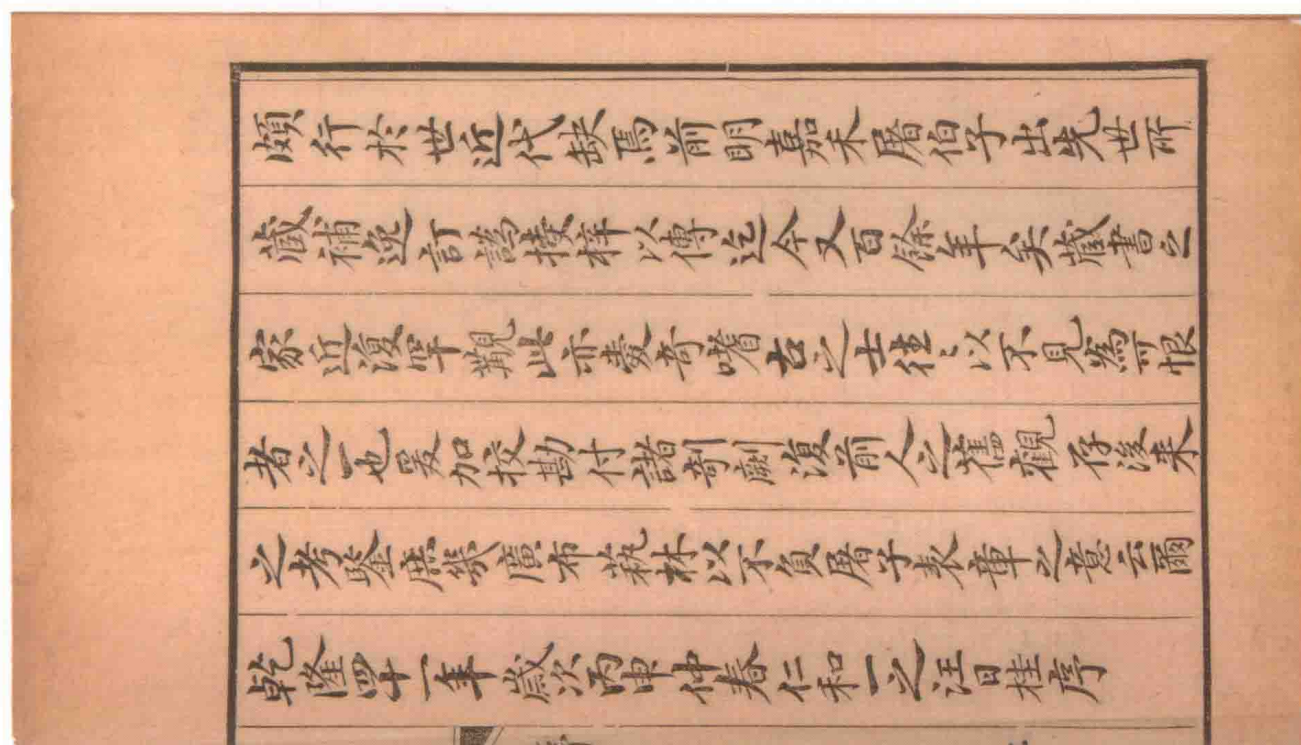 頗行於世近代缺焉前明嘉禾屠伯子出先世所
藏補逸訂譌授梓以傳迄今又百餘年矣藏書之
家近復罕覯此亦敻奇嗜古之士徃〻以不見為可恨
者之一也爰加挍勘付諸剞劂復前人之舊觀存後来
之考鍳庶㡬廣布蓺林以不負屠子表章之意云爾
乾隆四十一年歲次丙申仲春仁和一之汪日桂序